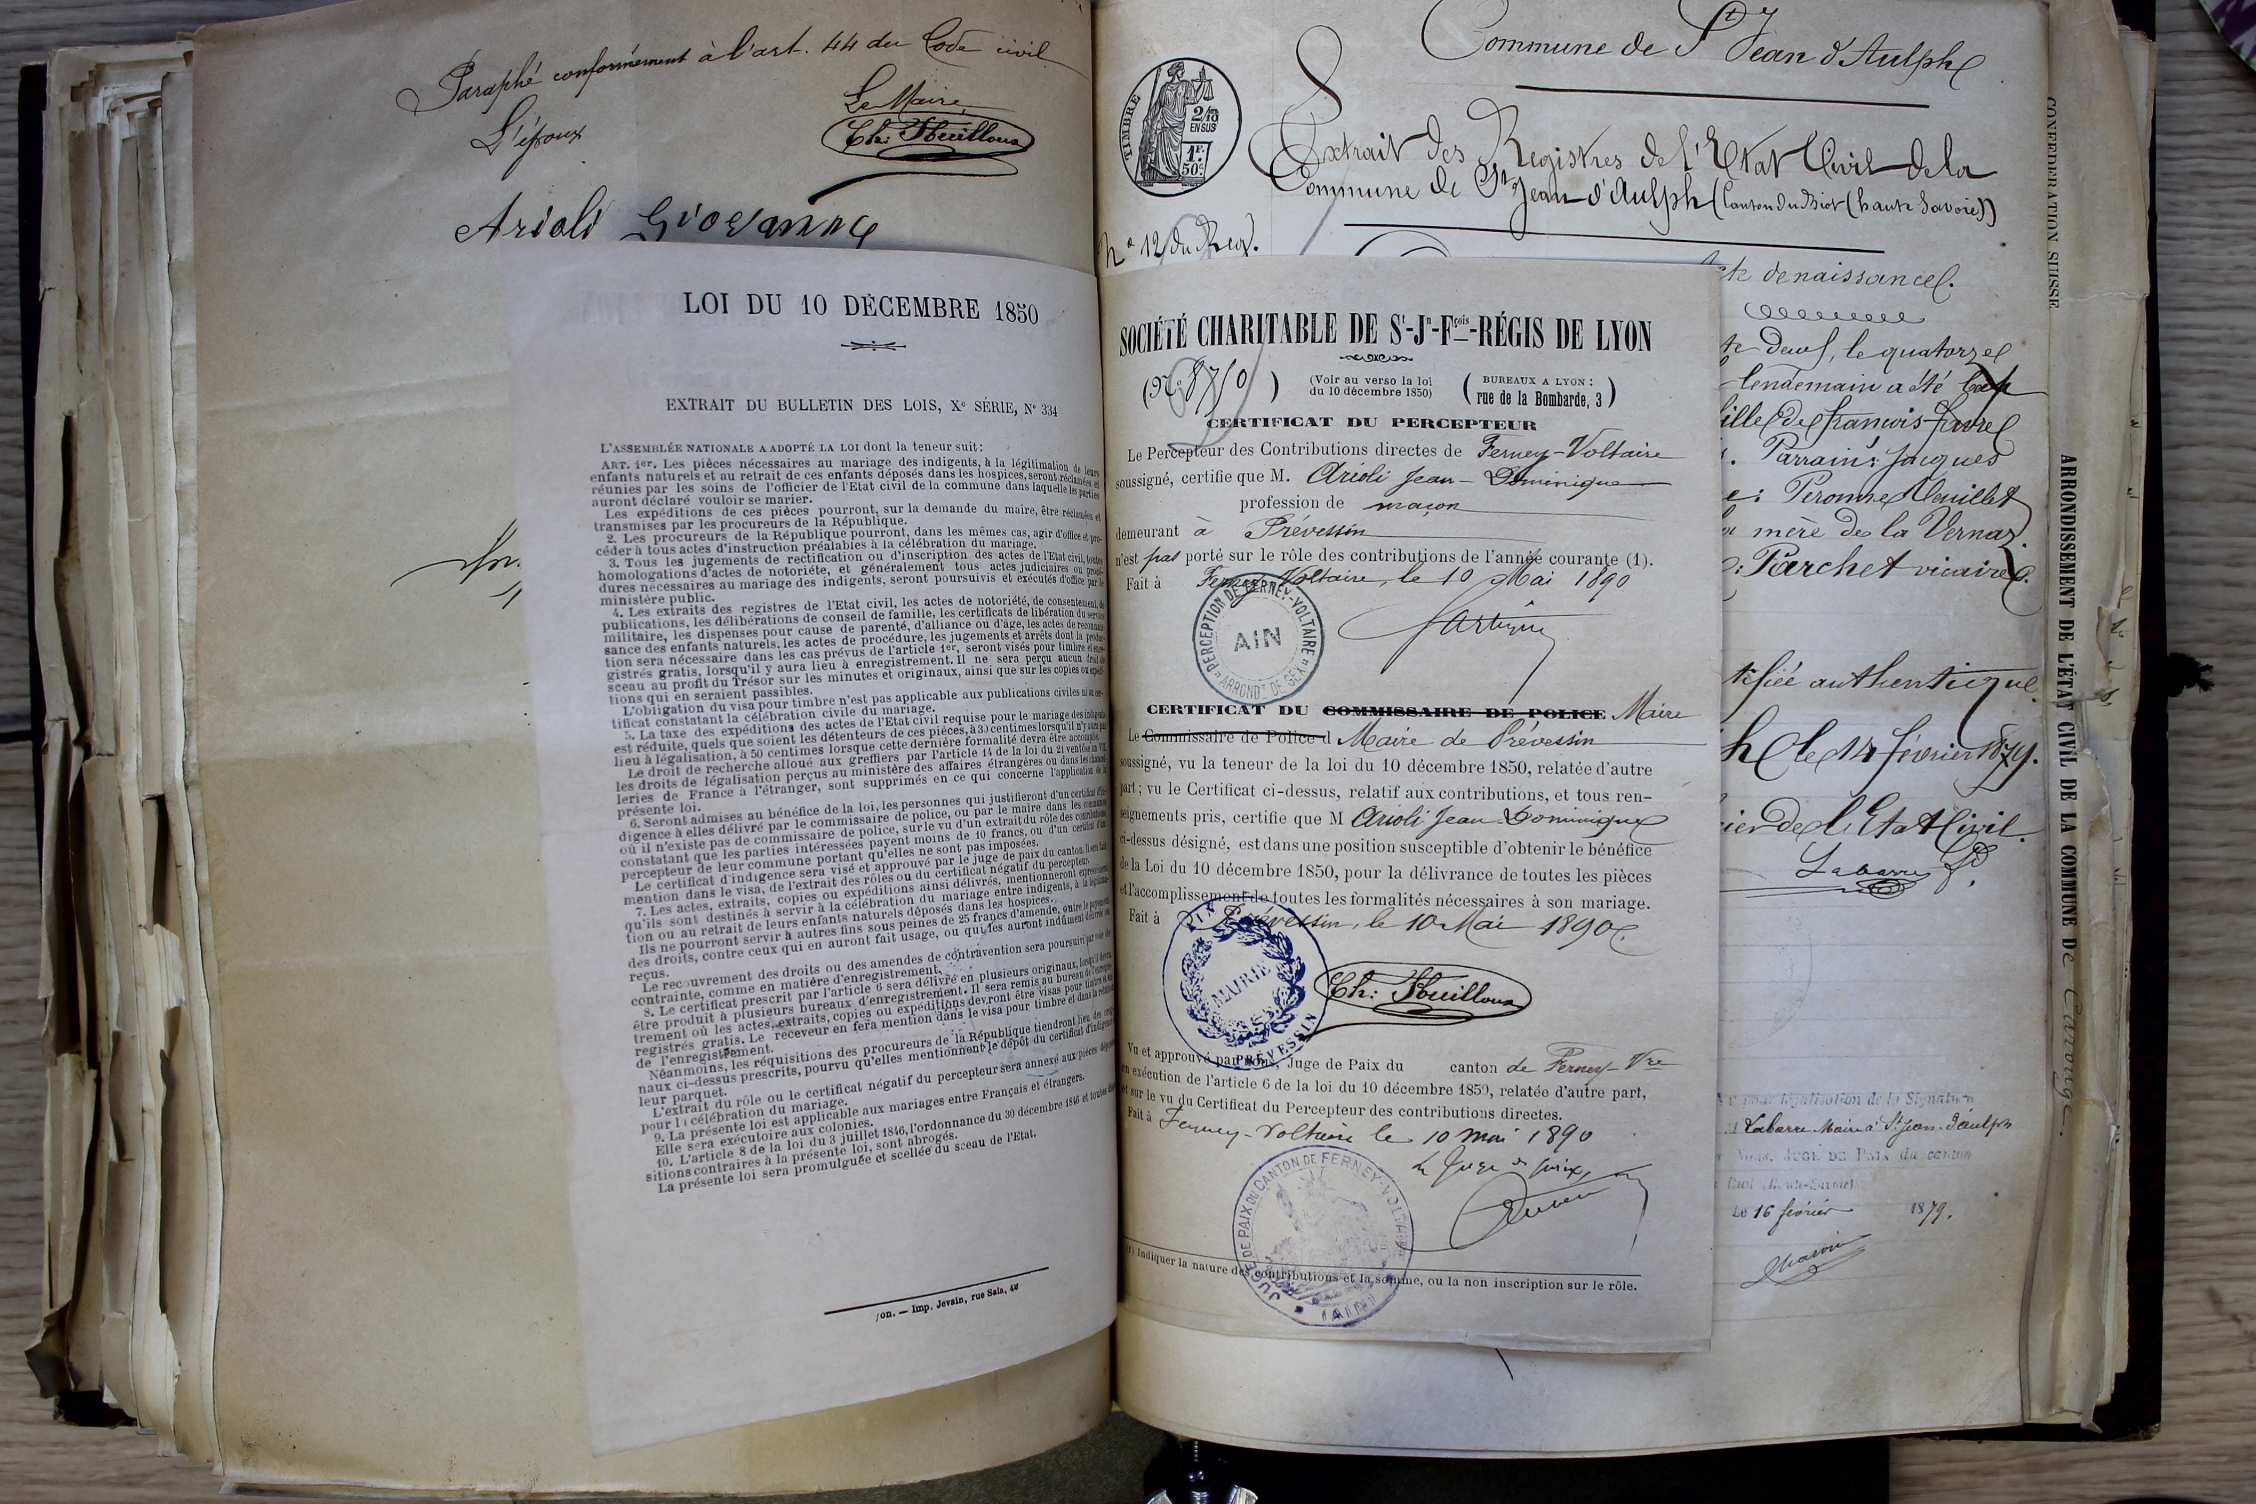 Paraphé conformément à l'art. 44 du Code civil
L'époux
Le Maire
Arioli Giovanni
LOI DU 10 DÉCEMBRE 1850
EXTRAIT DU BULLETIN DES LOIS, Xe SÉRIE, No 334
L'ASSEMBLÉE NATIONALE A ADOPTÉ LA LOI dont la teneur suit:
ART. 1er. Les pièces nécessaires au mariage des indigents, à la légitimation de leurs
enfants naturels et au retrait de ces enfants déposés dans les hospices, seront réclamées et
réunies par les soins de l'officier de l'Etat civil de la commune dans laquelle les parties
auront déclaré vouloir se marier.
Les expéditions de ces pièces pourront, sur la demande du maire, être réclamées et
transmises par les procureurs de la République.
2. Les procureurs de la République pourront, dans les mêmes cas, agir d'office et pro-
céder à tous actes d'instruction préalables à la célébration du mariage.
3. Tous les jugements de rectification ou d'inscription des actes de l'Etat civil, toutes
homologations d'actes de notoriété, et généralement tous actes judiciaires ou procé-
dures nécessaires au mariage des indigents, seront poursuivis et exécutés d'office par le
ministère public.
4. Les extraits des registres de l'Etat civil, les actes de notoriété, de consentement, de
publications, les délibérations de conseil de famille, les certificats de libération du service
militaire, les dispenses pour cause de parenté, d'alliance ou d'âge, les actes de reconnais-
sance des enfants naturels, les actes de procédure, les jugements et arrêts dont la produc-
tion sera nécessaire dans les cas prévus de l'article 1er, seront visés pour timbre et enre-
gistrés gratis, lorsqu'il y aura lieu à enregistrement. Il ne sera perçu aucun droit de
sceau au profit du Trésor sur les minutes et originaux, ainsi que sur les copies ou expédi-
tions qui en seraient passibles.
L'obligation du visa pour timbre n'est pas applicable aux publications civiles ni au cer-
tificat constatant la célébration civile du mariage.
5. La taxe des expéditions des actes de l'Etat civil requise pour le mariage des indigents
est réduite, quels que soient les détenteurs de ces pièces, à 30 centimes lorsqu'il n'y aura pas
lieu à légalisation, à 50 centimes lorsque cette dernière formalité devra être accomplie.
Le droit de recherche alloué aux greffiers par l'article 14 de la loi du 21 ventôse an VII,
les droits de légalisation perçus au ministère des affaires étrangères ou dans les chancel-
leries de France à l'étranger, sont supprimés en ce qui concerne l'application de la
présente loi.
6. Seront admises au bénéfice de la loi, les personnes qui justifieront d'un certificat d'in-
digence à elles délivré par le commissaire de police, ou par le maire dans les communes
où il n'existe pas de commissaire de police, sur le vu d'un extrait du rôle des contributions
constatant que les parties intéressées payent moins de 10 francs, ou d'un certificat du
percepteur de leur commune portant qu'elles ne sont pas imposées.
Le certificat d'indigence sera visé et approuvé par le juge de paix du canton. Il sera fait
mention dans le visa, de l'extrait des rôles ou du certificat négatif du percepteur.
7. Les actes, extraits, copies ou expéditions ainsi délivrés, mentionneront expressément
qu'ils sont destinés à servir à la célébration du mariage entre indigents, à la légitima-
tion ou au retrait de leurs enfants naturels déposés dans les hospices.
Ils ne pourront servir à autres fins sous peines de 25 francs d'amende, outre le payement
des droits, contre ceux qui en auront fait usage, ou qui les auront indûment délivrés ou
reçus.
Le recouvrement des droits ou des amendes de contravention sera poursuivi par voie de
contrainte, comme en matière d'enregistrement.
8. Le certificat prescrit par l'article 6 sera délivré en plusieurs originaux, lorsqu'il devra
être produit à plusieurs bureaux d'enregistrement. Il sera remis au bureau de l'enregis-
trement où les actes, extraits, copies ou expéditions devront être visas pour timbre et
registrés gratis. Le receveur en fera mention dans le visa pour timbre et dans la relation
de l'enregistrement.
Néanmoins, les réquisitions des procureurs de la République tiendront lieu des origi-
naux ci-dessus prescrits, pourvu qu'elles mentionnent le dépôt du certificat d'indigence
leur parquet.
L'extrait du rôle ou le certificat négatif du percepteur sera annexé aux pièces déposées
pour la célébration du mariage.
9. La présente loi est applicable aux mariages entre Français et étrangers.
Elle sera exécutoire aux colonies.
10. L'article 8 de la loi du 3 juillet 1846, l'ordonnance du 30 décembre 1846 et toutes
sitions contraires à la présente loi, sont abrogés.
La présente loi sera promulguée et scellée du sceau de l'Etat.
on. — Imp. Jevain, rue Sala, 42
TIMBRE
2/10
EN SUS
1F.
50c.
Commune de St Jean d'Aulph
Extrait des Registres de l'Etat Civil de la
Commune de St Jean d'Aulph (Canton du Biot (haute Savoie))
No 12 du Reg.
acte de naissance.
SOCIÉTÉ CHARITABLE DE St-Jn-Fçois-RÉGIS DE LYON
(No 8750)
(Voir au verso la loi
du 10 décembre 1850)
( BUREAUX A LYON :
rue de la Bombarde, 3 )
CERTIFICAT DU PERCEPTEUR
Le Percepteur des Contributions directes de Ferney-Voltaire
soussigné, certifie que M. Arioli Jean-Dominique
profession de maçon
demeurant à Prévessin
n'est pas porté sur le rôle des contributions de l'année courante (1).
Fait à Ferney-Voltaire, le 10 Mai 1890
PERCEPTION DE FERNEY-VOLTAIRE
AIN
ARRONDT DE GEX
CERTIFICAT DU COMMISSAIRE DE POLICE Maire
Le Commissaire de Police d Maire de Prévessin
soussigné, vu la teneur de la loi du 10 décembre 1850, relatée d'autre
part; vu le Certificat ci-dessus, relatif aux contributions, et tous ren-
seignements pris, certifie que M Arioli Jean-Dominique
ci-dessus désigné, est dans une position susceptible d'obtenir le bénéfice
de la Loi du 10 décembre 1850, pour la délivrance de toutes les pièces
et l'accomplissement de toutes les formalités nécessaires à son mariage.
Fait à Prévessin, le 10 Mai 1890
MAIRIE
PRÉVESSIN
Vu et approuvé par nous, Juge de Paix du canton de Ferney-Vre
en exécution de l'article 6 de la loi du 10 décembre 1850, relatée d'autre part,
et sur le vu du Certificat du Percepteur des contributions directes.
Fait à Ferney-Voltaire le 10 mai 1890
Le Juge de paix,
JUGE DE PAIX DU CANTON DE FERNEY-VOLTAIRE
(AIN)
(1) Indiquer la nature des contributions et la somme, ou la non inscription sur le rôle.
te deux, le quatorze
lendemain a été bap
fille de françois favre
Parrain: Jacques
: Peronne
mère de la Vernaz
: Parchet vicaire.
tifiée authentique
h le 14 février 1879.
cier de l'Etat Civil.
Labarre
pour légalisation de la Signature
Labarre Maire à St Jean-d'aulph
Nous, JUGE DE PAIX du canton
Biot (Haute-Savoie)
Le 16 février 1879.
CONFEDERATION SUISSE
ARRONDISSEMENT DE L'ÉTAT CIVIL DE LA COMMUNE DE Carouge